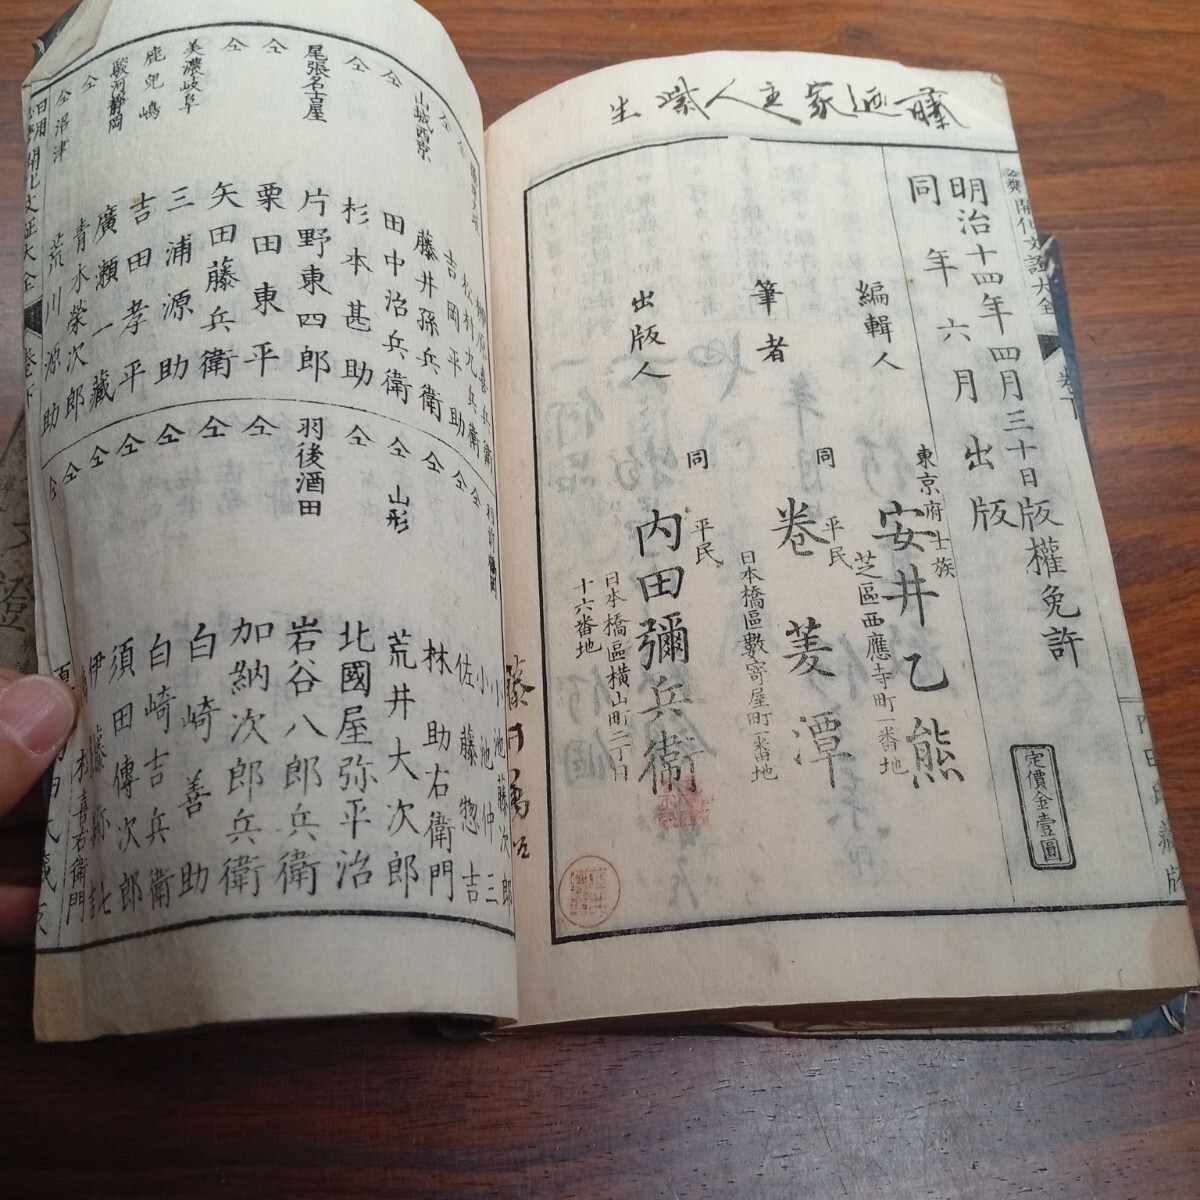 開化文証大全
卷下
明治十四年四月三十日版權免許
同年六月出版
定價金壹圓
編輯人
東京府士族
安井乙熊
芝區西應寺町一番地
筆者
同
平民
卷菱潭
日本橋區數寄屋町一番地
出版人
同
平民
内田彌兵衞
日本橋區橫山町二丁目
十六番地
仝
松村九兵衛
仝
吉岡平助
山城西京
藤井孫兵衛
仝
田中治兵衛
仝
杉本甚助
尾張名古屋
片野東四郎
仝
栗田東平
仝
矢田藤兵衛
美濃岐阜
三浦源助
鹿兒嶋
吉田孝平
駿河静岡
廣瀬一藏
仝
青水榮次郎
仝沼津
荒川源助
小池藤次郎
仝
小池仲三
仝
佐藤惣吉
仝
林助右衛門
仝山形
荒井大次郎
仝
北國屋弥平治
羽後酒田
岩谷八郎兵衛
仝
加納次郎兵衛
仝
白崎善助
仝
白崎吉兵衛
仝
須田傳次郎
仝
伊藤弥七
開化文証大全
卷下